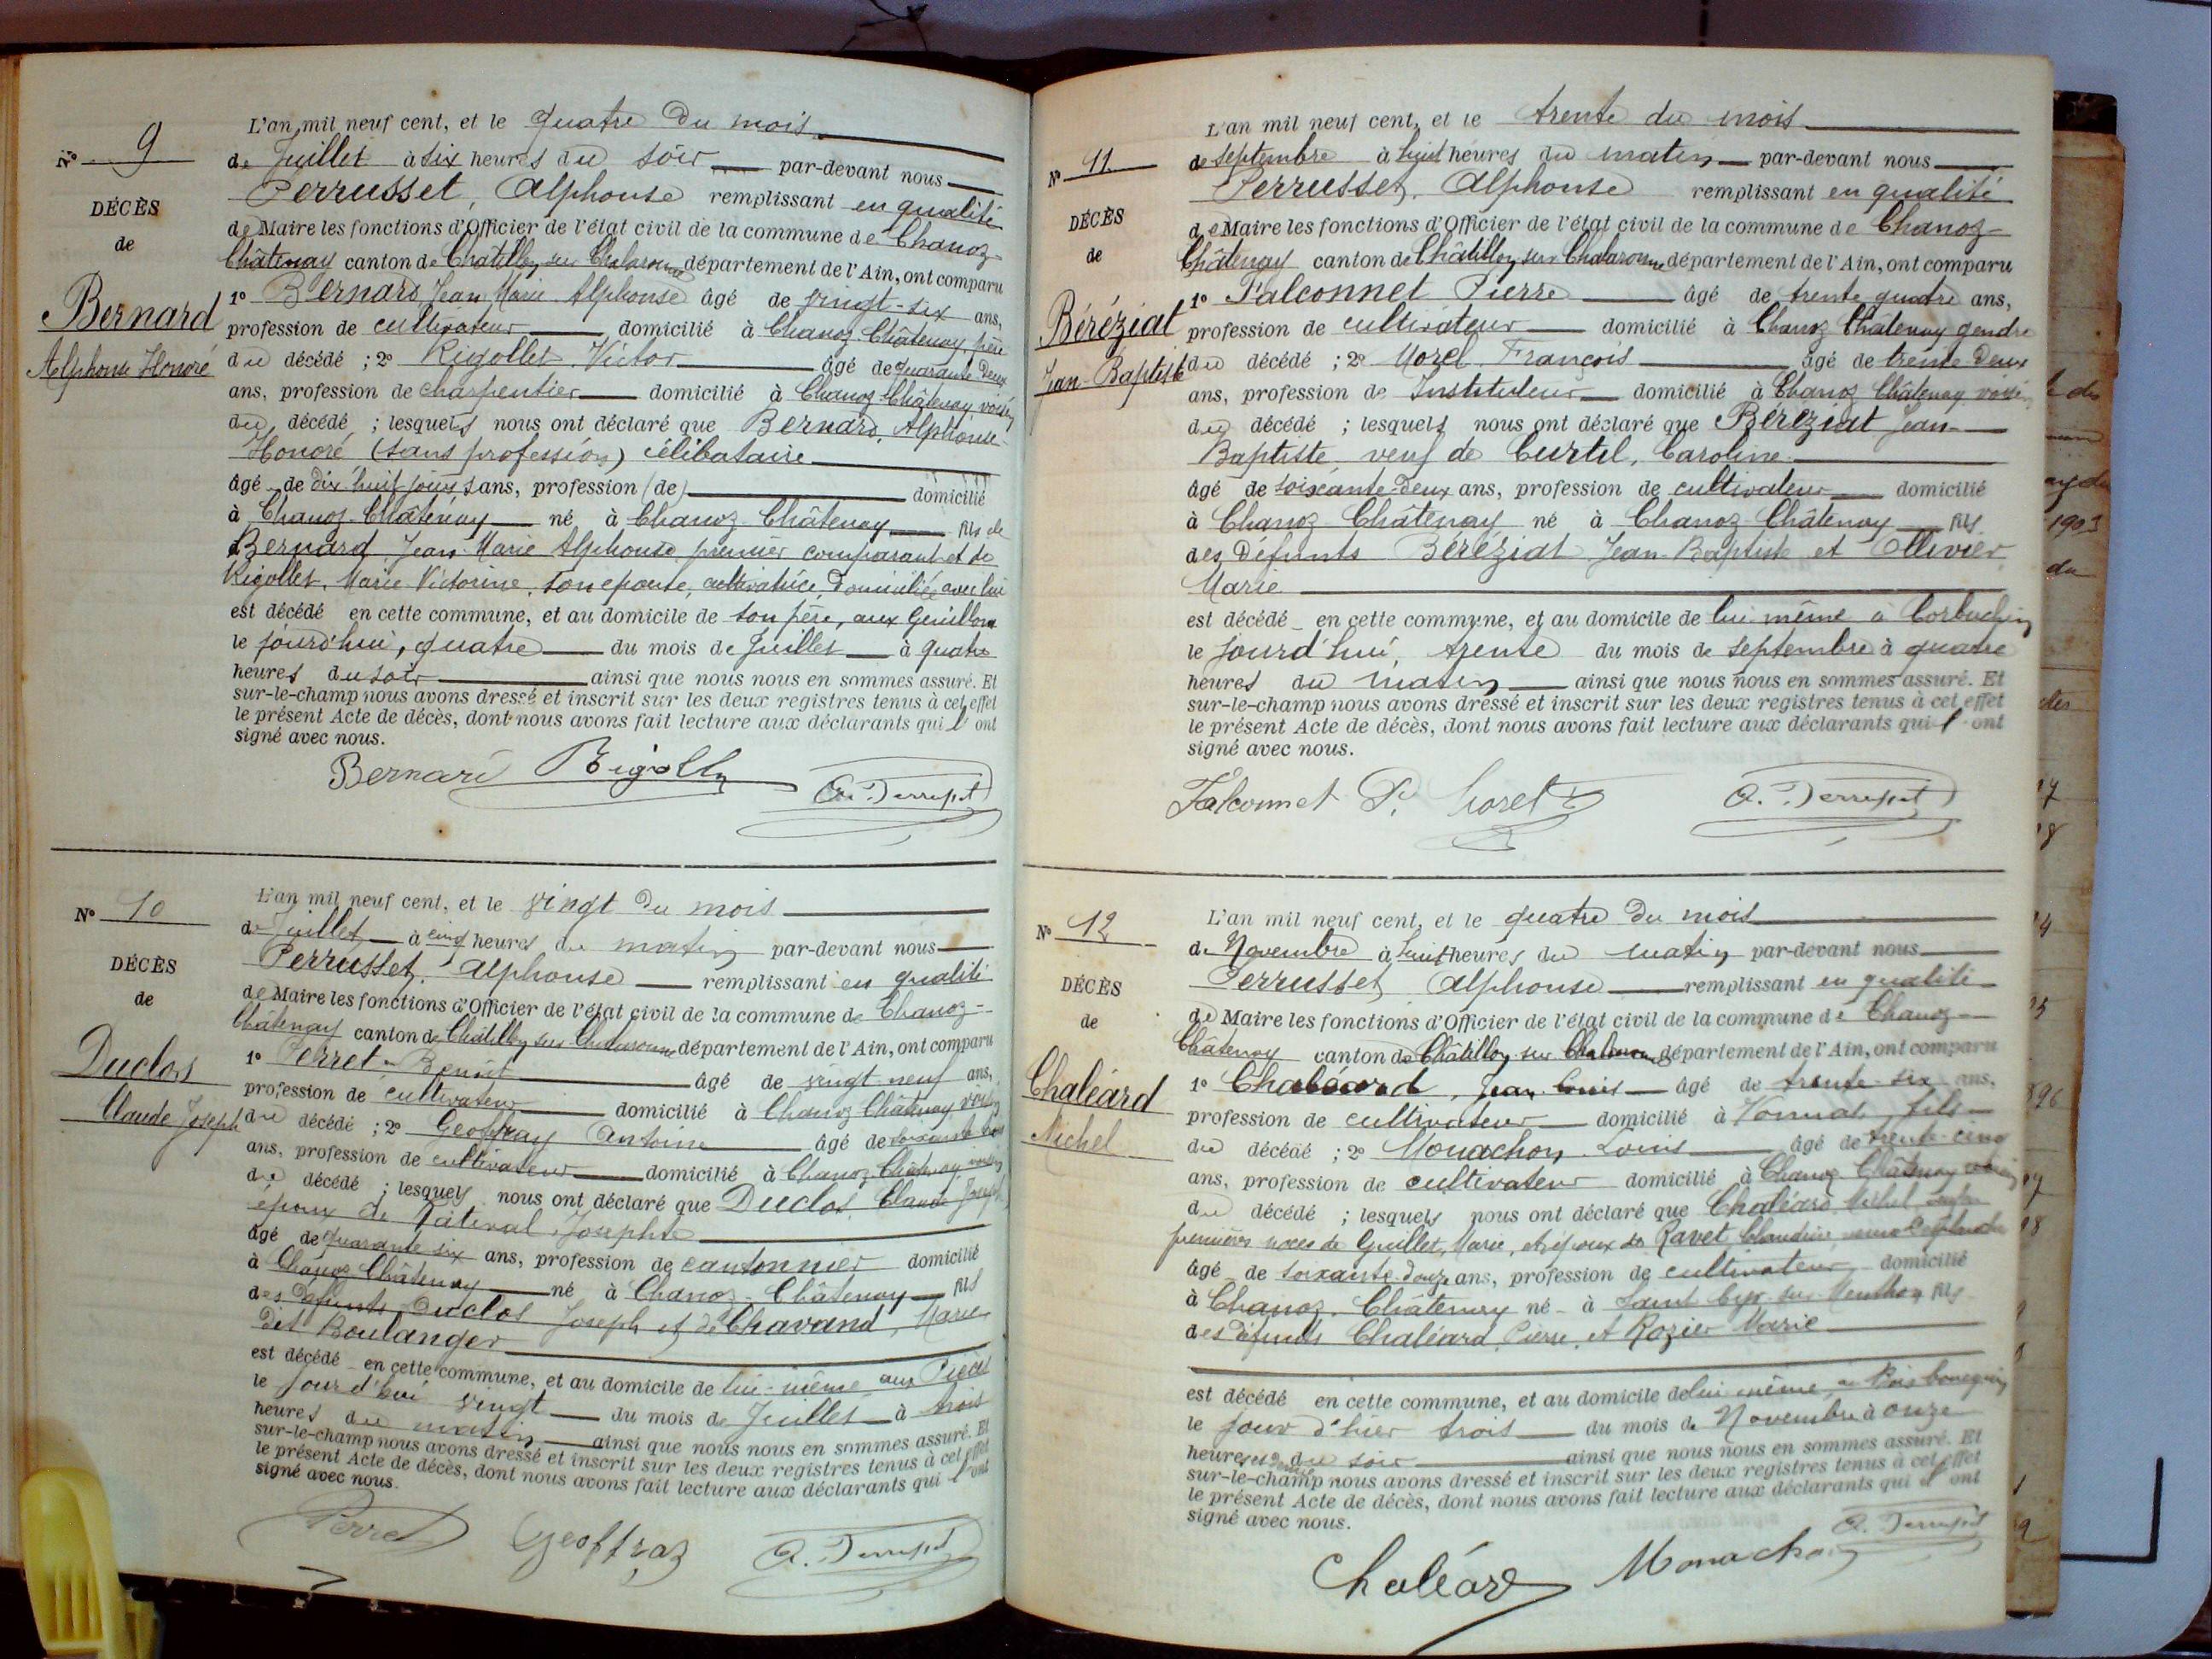 N° 9
DÉCÈS
de
Bernard
Alphonse Honoré
L'an mil neuf cent, et le quatre du mois
de Juillet à six heures du soir par-devant nous
Perrusset, Alphonse remplissant en qualité
de Maire les fonctions d'Officier de l'état civil de la commune de Chanoz-
Châtenay canton de Châtillon sur Chalaronne département de l'Ain, ont comparu
1° Bernard Jean Marie Alphonse âgé de vingt-six ans,
profession de cultivateur domicilié à Chanoz-Châtenay, père
du décédé ; 2° Rigollet Victor âgé de quarante-deux
ans, profession de charpentier domicilié à Chanoz Châtenay voisin
du décédé ; lesquels nous ont déclaré que Bernard, Alphonse
Honoré (sans profession) célibataire
âgé de dix huit jours ans, profession (de) domicilié
à Chanoz-Châtenay né à Chanoz-Châtenay fils de
Bernard Jean-Marie Alphonse premier comparant et de
Rigollet, Marie Victorine, son épouse, cultivatrice, domiciliée avec lui
est décédé en cette commune, et au domicile de son père, aux Guillons
le jourd'hui, quatre du mois de Juillet à quatre
heures du soir ainsi que nous nous en sommes assuré. Et
sur-le-champ nous avons dressé et inscrit sur les deux registres tenus à cet effet
le présent Acte de décès, dont nous avons fait lecture aux déclarants qui l'ont
signé avec nous.
Bernard Rigollet A. Perrusset
N° 10
DÉCÈS
de
Duclos
Claude Joseph
L'an mil neuf cent, et le vingt du mois
de Juillet à cinq heures du matin par-devant nous
Perrusset, Alphonse remplissant en qualité
de Maire les fonctions d'Officier de l'état civil de la commune de Chanoz-
Châtenay canton de Châtillon sur Chalaronne département de l'Ain, ont comparu
1° Perret Benoit âgé de vingt neuf ans,
profession de cultivateur domicilié à Chanoz Châtenay voisin
du décédé ; 2° Geoffray Antoine âgé de soixante
ans, profession de cultivateur domicilié à Chanoz-Châtenay voisin
du décédé ; lesquels nous ont déclaré que Duclos, Claude Joseph
époux de Josephte
âgé de quarante six ans, profession de cantonnier domicilié
à Chanoz Châtenay né à Chanoz-Châtenay fils
des défunts Duclos Joseph et de Chavand, Marie
dit Boulanger
est décédé en cette commune, et au domicile de lui-même aux
le jourd'hui vingt du mois de Juillet à trois
heures du matin ainsi que nous nous en sommes assuré. Et
sur-le-champ nous avons dressé et inscrit sur les deux registres tenus à cet effet
le présent Acte de décès, dont nous avons fait lecture aux déclarants qui l'ont
signé avec nous.
Perret Geoffray A. Perrusset
N° 11
DÉCÈS
de
Béréziat
Jean-Baptiste
L'an mil neuf cent, et le trente du mois
de septembre à huit heures du matin par-devant nous
Perrusset, Alphonse remplissant en qualité
de Maire les fonctions d'Officier de l'état civil de la commune de Chanoz-
Châtenay canton de Châtillon sur Chalaronne département de l'Ain, ont comparu
1° Falconnet Pierre âgé de trente quatre ans,
profession de cultivateur domicilié à Chanoz Châtenay gendre
du décédé ; 2° Morel François âgé de trente deux
ans, profession de Instituteur domicilié à Chanoz Châtenay voisin
du décédé ; lesquels nous ont déclaré que Béréziat Jean-
Baptiste, veuf de Curtil, Caroline
âgé de soixante-deux ans, profession de cultivateur domicilié
à Chanoz Châtenay né à Chanoz Châtenay fils
des défunts Béréziat Jean-Baptiste et Ollivier
Marie
est décédé en cette commune, et au domicile de lui même à
le jourd'hui, trente du mois de septembre à quatre
heures du matin ainsi que nous nous en sommes assuré. Et
sur-le-champ nous avons dressé et inscrit sur les deux registres tenus à cet effet
le présent Acte de décès, dont nous avons fait lecture aux déclarants qui l'ont
signé avec nous.
Falconnet P. Morel A. Perrusset
N° 12
DÉCÈS
de
Chaléard
Michel
L'an mil neuf cent, et le quatre du mois
de Novembre à huit heures du matin par-devant nous
Perrusset Alphonse remplissant en qualité
de Maire les fonctions d'Officier de l'état civil de la commune de Chanoz-
Châtenay canton de Châtillon sur Chalaronne département de l'Ain, ont comparu
1° Chaléard, Jean Louis âgé de trente-six ans,
profession de cultivateur domicilié à Vonnas, fils
du décédé ; 2° Monachon Louis âgé de trente-cinq
ans, profession de cultivateur domicilié à Chanoz-Châtenay voisin
du décédé ; lesquels nous ont déclaré que Chaléard Michel
premières noces de Guillet, Marie, et époux de Ravet Claudine
âgé de soixante-douze ans, profession de cultivateur domicilié
à Chanoz-Châtenay né à Saint Cyr-sur-Menthon fils
des défunts Chaléard, Pierre, et Rozier Marie
est décédé en cette commune, et au domicile de lui même
le jour d'hier trois du mois de Novembre à onze
heures du soir ainsi que nous nous en sommes assuré. Et
sur-le-champ nous avons dressé et inscrit sur les deux registres tenus à cet effet
le présent Acte de décès, dont nous avons fait lecture aux déclarants qui l'ont
signé avec nous.
Chaléard Monachon A. Perrusset